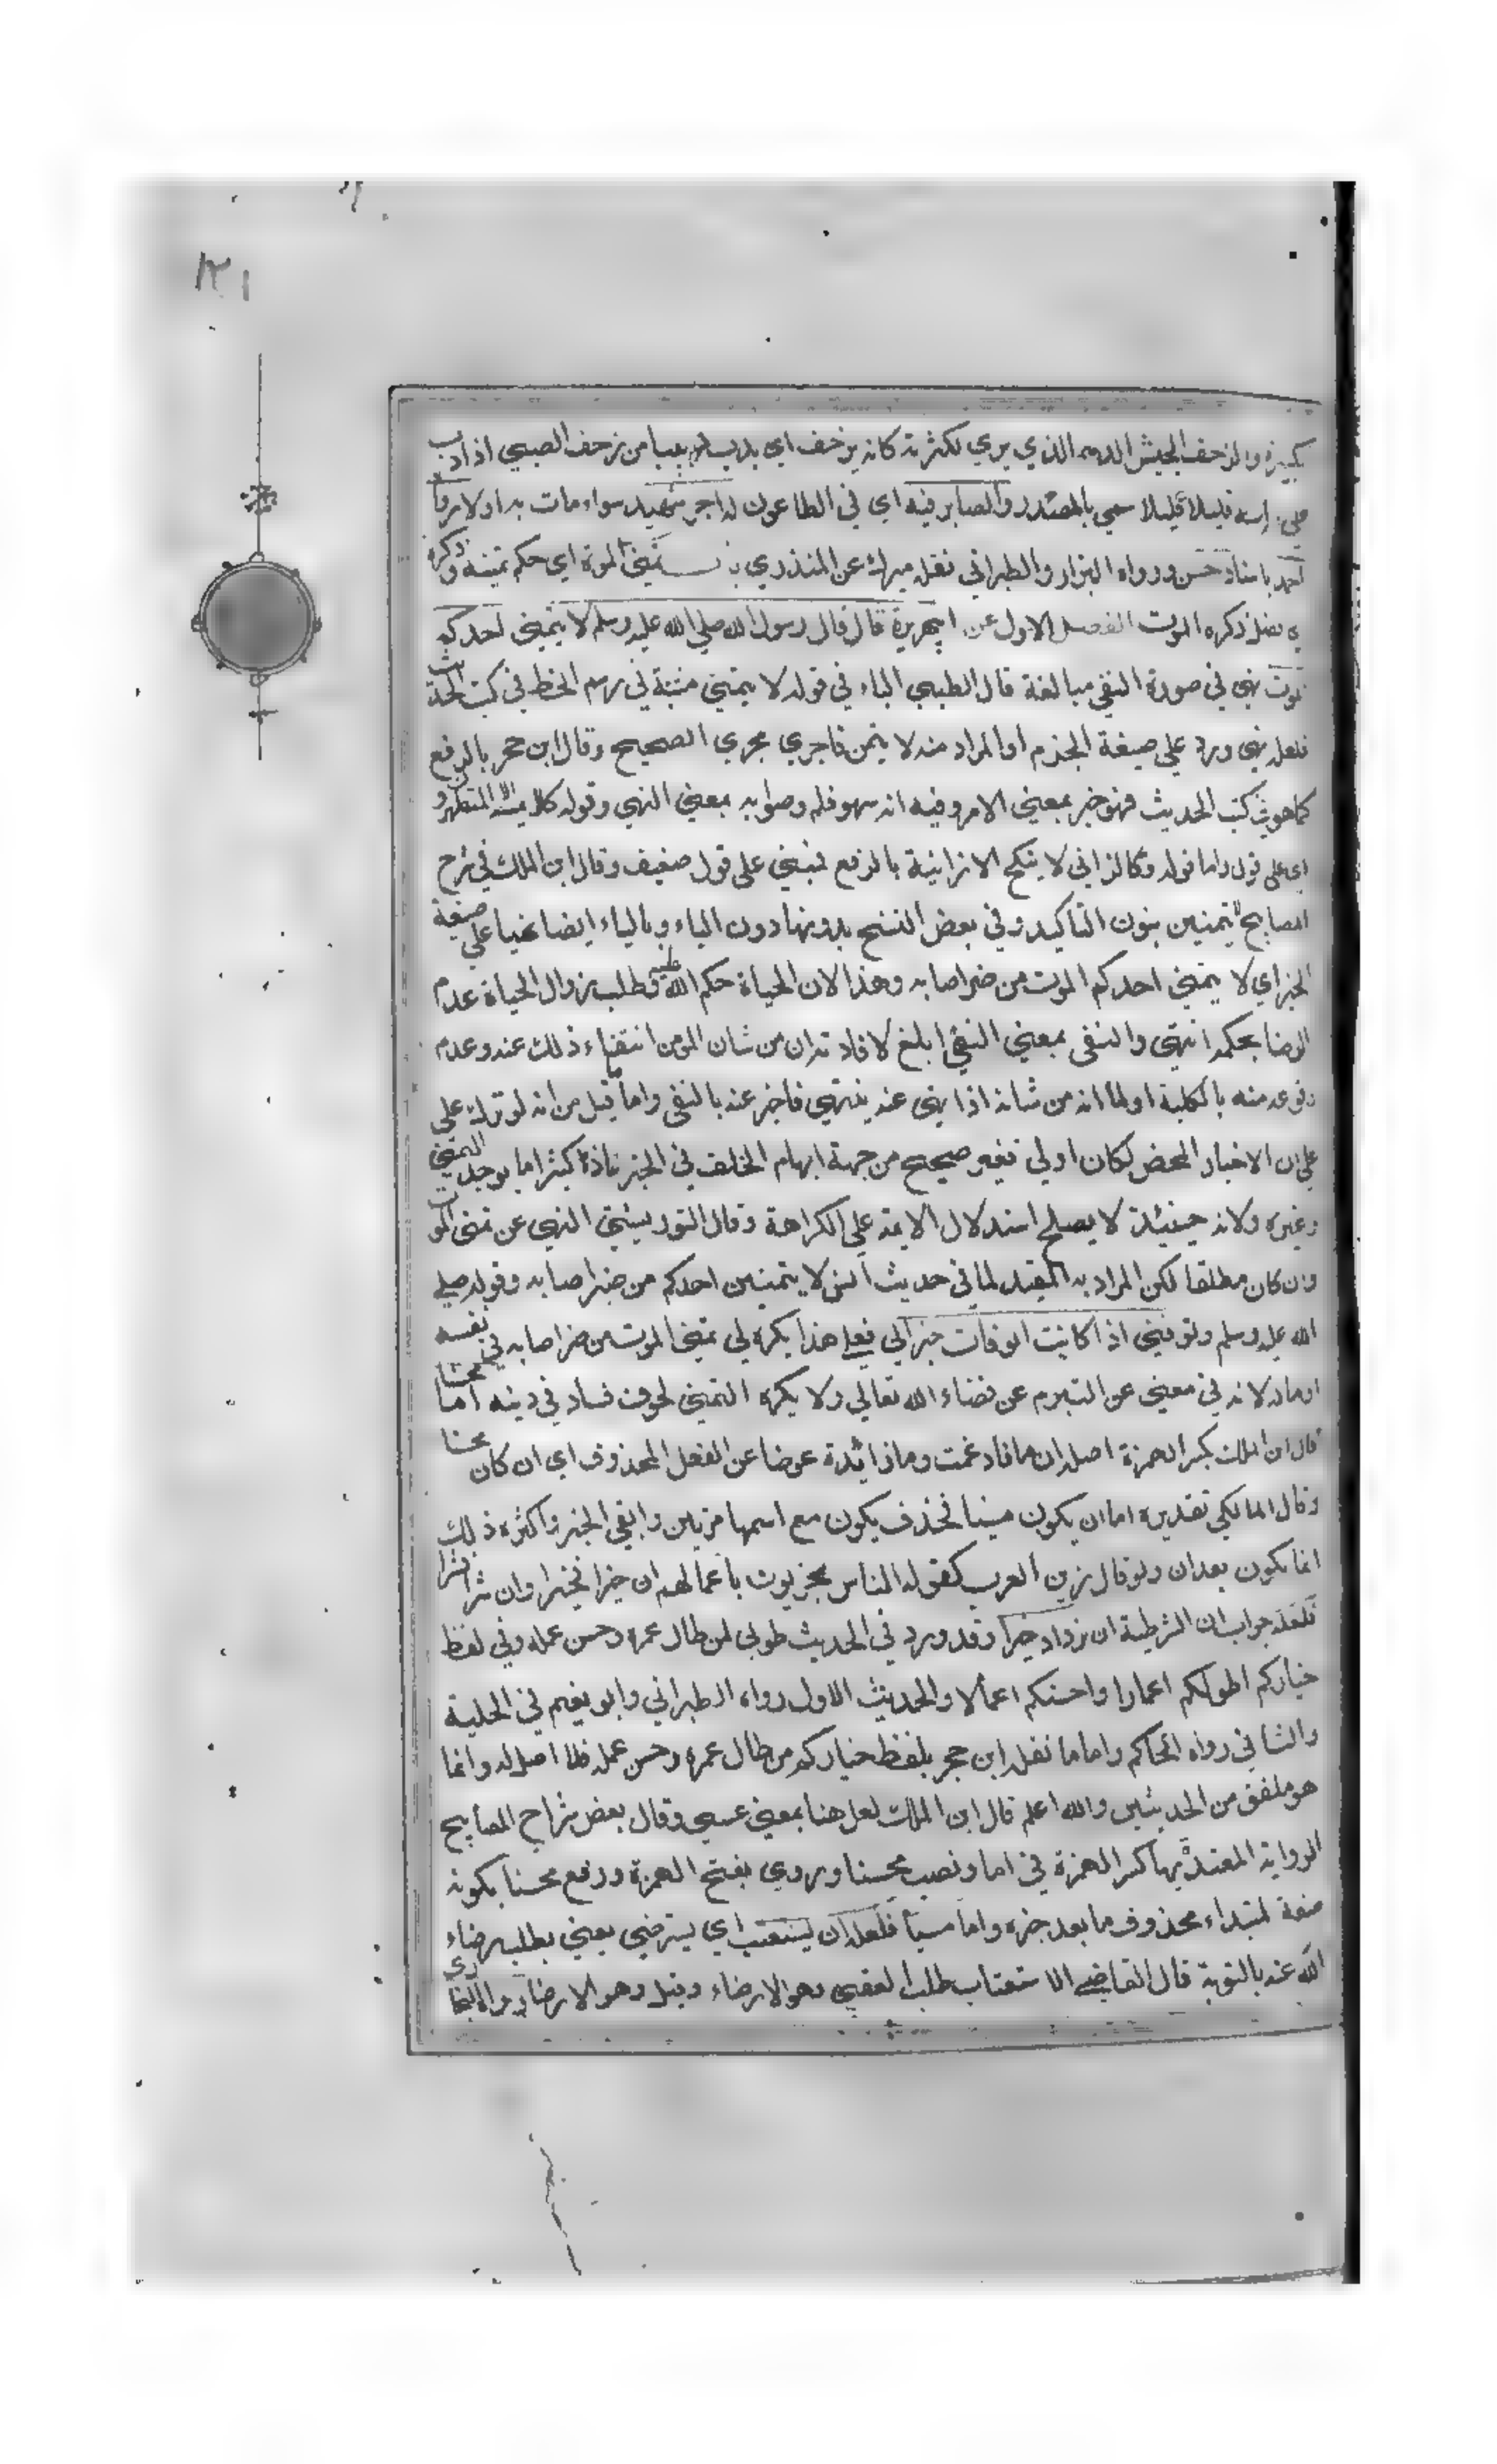 ١٢١
كبيرة والزحف الجيش الدهم الذي يري لكثرته كانه يزحف اي يدب دبيبا من زحف الصبي اذا دب
علي استه قليلا قليلا سمي بالمصدر والصابر فيه اي في الطاعون له اجر شهيد سواء مات به او لا رواه
احمد باسناد حسن ورواه البزار والطبراني نقله ميرك عن المنذري باب تمني الموت اي حكم تمنيه وذكره
اي فضل ذكره الموت الفصل الاول عن ابي هريرة قال قال رسول الله صلي الله عليه وسلم لا يتمني احدكم
الموت نهي في صورة النفي مبالغة قال الطيبي الياء في قوله لا يتمني مثبتة في رسم الخط في كتب الحديث
فلعله نهي ورد علي صيغة الجزم او المراد منه لا يتمن فاجري مجري الصحيح وقال ابن حجر بالرفع
كما هو في كتب الحديث فهو خبر بمعني الامر وفيه انه سهو قلم وصوابه بمعني النهي وقوله كلا يمسه الا المتطهرون
اي علي قول واما قوله وكالزاني لا ينكح الا زانية بالرفع فمبني علي قول ضعيف وقال ابن الملك في شرح
المصابيح لا يتمنين بنون التاكيد وفي بعض النسخ بدونها دون الياء وبالياء ايضا نهيا علي صيغة
الخبر اي لا يتمني احدكم الموت من ضر اصابه وهذا لان الحياة حكم الله عليه وطلب زوال الحياة عدم
الرضا بحكمه انتهي والنفي بمعني النهي ابلغ لافادته ان من شان المومن انتفاء ذلك عنه وعدم
وقوعه منه بالكلية او لما انه من شانه اذا نهي عنه ينتهي فاخبر عنه بالنفي واما قيل من انه لو ترك علي
علي ان الاخبار المحض لكان اولي فغير صحيح من جهة ابهام الخلف في الخبر فانه كثيرا ما يوجد التمني
وغيره ولانه حينئذ لا يصلح استدلال الايمة علي الكراهة وقال التوربشتي النهي عن تمني الموت
وان كان مطلقا لكن المراد به المقيد لما في حديث انس لا يتمنين احدكم من ضر اصابه وقوله صلي
الله عليه وسلم وتوفني اذا كانت الوفات خيرا لي فعلي هذا يكره لي تمني الموت من ضر اصابه في نفسه
او ماله لانه في معني عن التبرم عن قضاء الله تعالي ولا يكره التمني لخوف فساد في دينه اما محسنا
قال ابن الملك بكسر الهمزة اصله ان ما فادغمت وما زائدة عوضا عن الفعل المحذوف اي ان كان محسنا
وقال المالكي تقديره اما ان يكون محسنا فحذف يكون مع اسمها مرتين وابقي الخبر واكثره ذلك
انما يكون بعد ان ولو قال زين العرب كقوله الناس مجزيون باعمالهم ان خيرا فخيرا وان شرا فشرا
فلعله جواب ان الشرطية ان يزداد خيرا وقد ورد في الحديث طوبي لمن طال عمره وحسن عمله وفي لفظ
خياركم اطولكم اعمارا واحسنكم اعمالا والحديث الاول رواه الطبراني وابو نعيم في الحلية
والثاني رواه الحاكم واما ما نقله ابن حجر بلفظ خياركم من طال عمره وحسن عمله فلا اصل له وانما
هو ملفق من الحديثين والله اعلم قال ابن الملك لعل هنا بمعني عسي وقال بعض شراح المصابيح
الرواية المعتد بها كسر الهمزة في اما ونصب محسنا وروي بفتح الهمزة ورفع محسنا بكونه
صفة لمبتداء محذوف ما بعد خبره واما مسيأ فلعله ان يستعتب اي يسترضي يعني بطلب رضاء
الله عنه بالتوبة قال القاضي الاستعتاب طلب العتبي وهو الارضاء وقيل وهو الارضاء